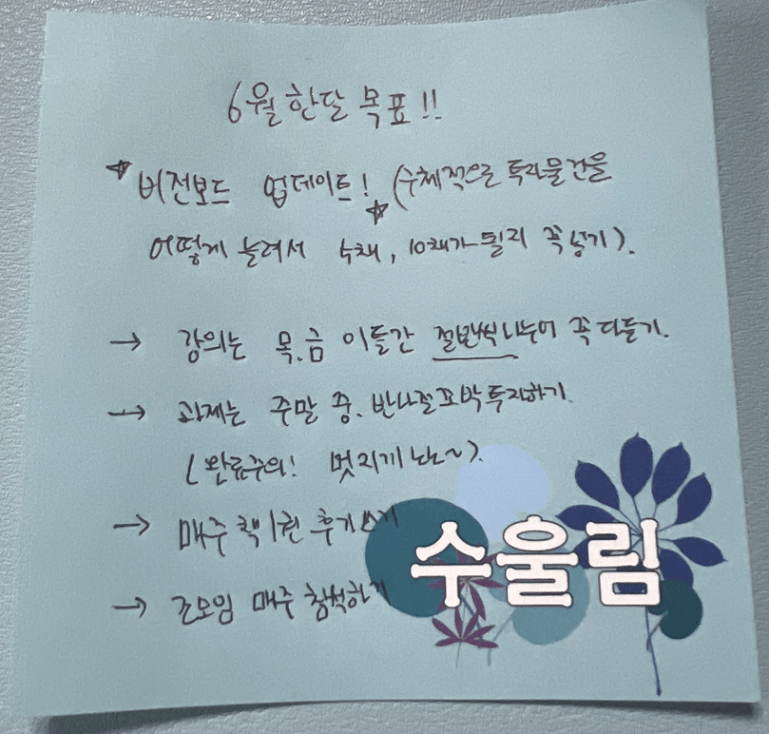 6월 한달 목표!!
★ 비전보드 업데이트! ★ (수체적으로 투자물건을
어떻게 늘려서 수채, 10채가 될지 꼭 넣기).
→ 강의는 목.금 이틀간 절반씩 나누어 꼭 다듣기.
→ 과제는 주말 중. 반나절꼬박투자하기.
(완료주의! 멋지게 노노~).
→ 매주 책1권 후기쓰기
→ 조모임 매주 참석하기
수울림